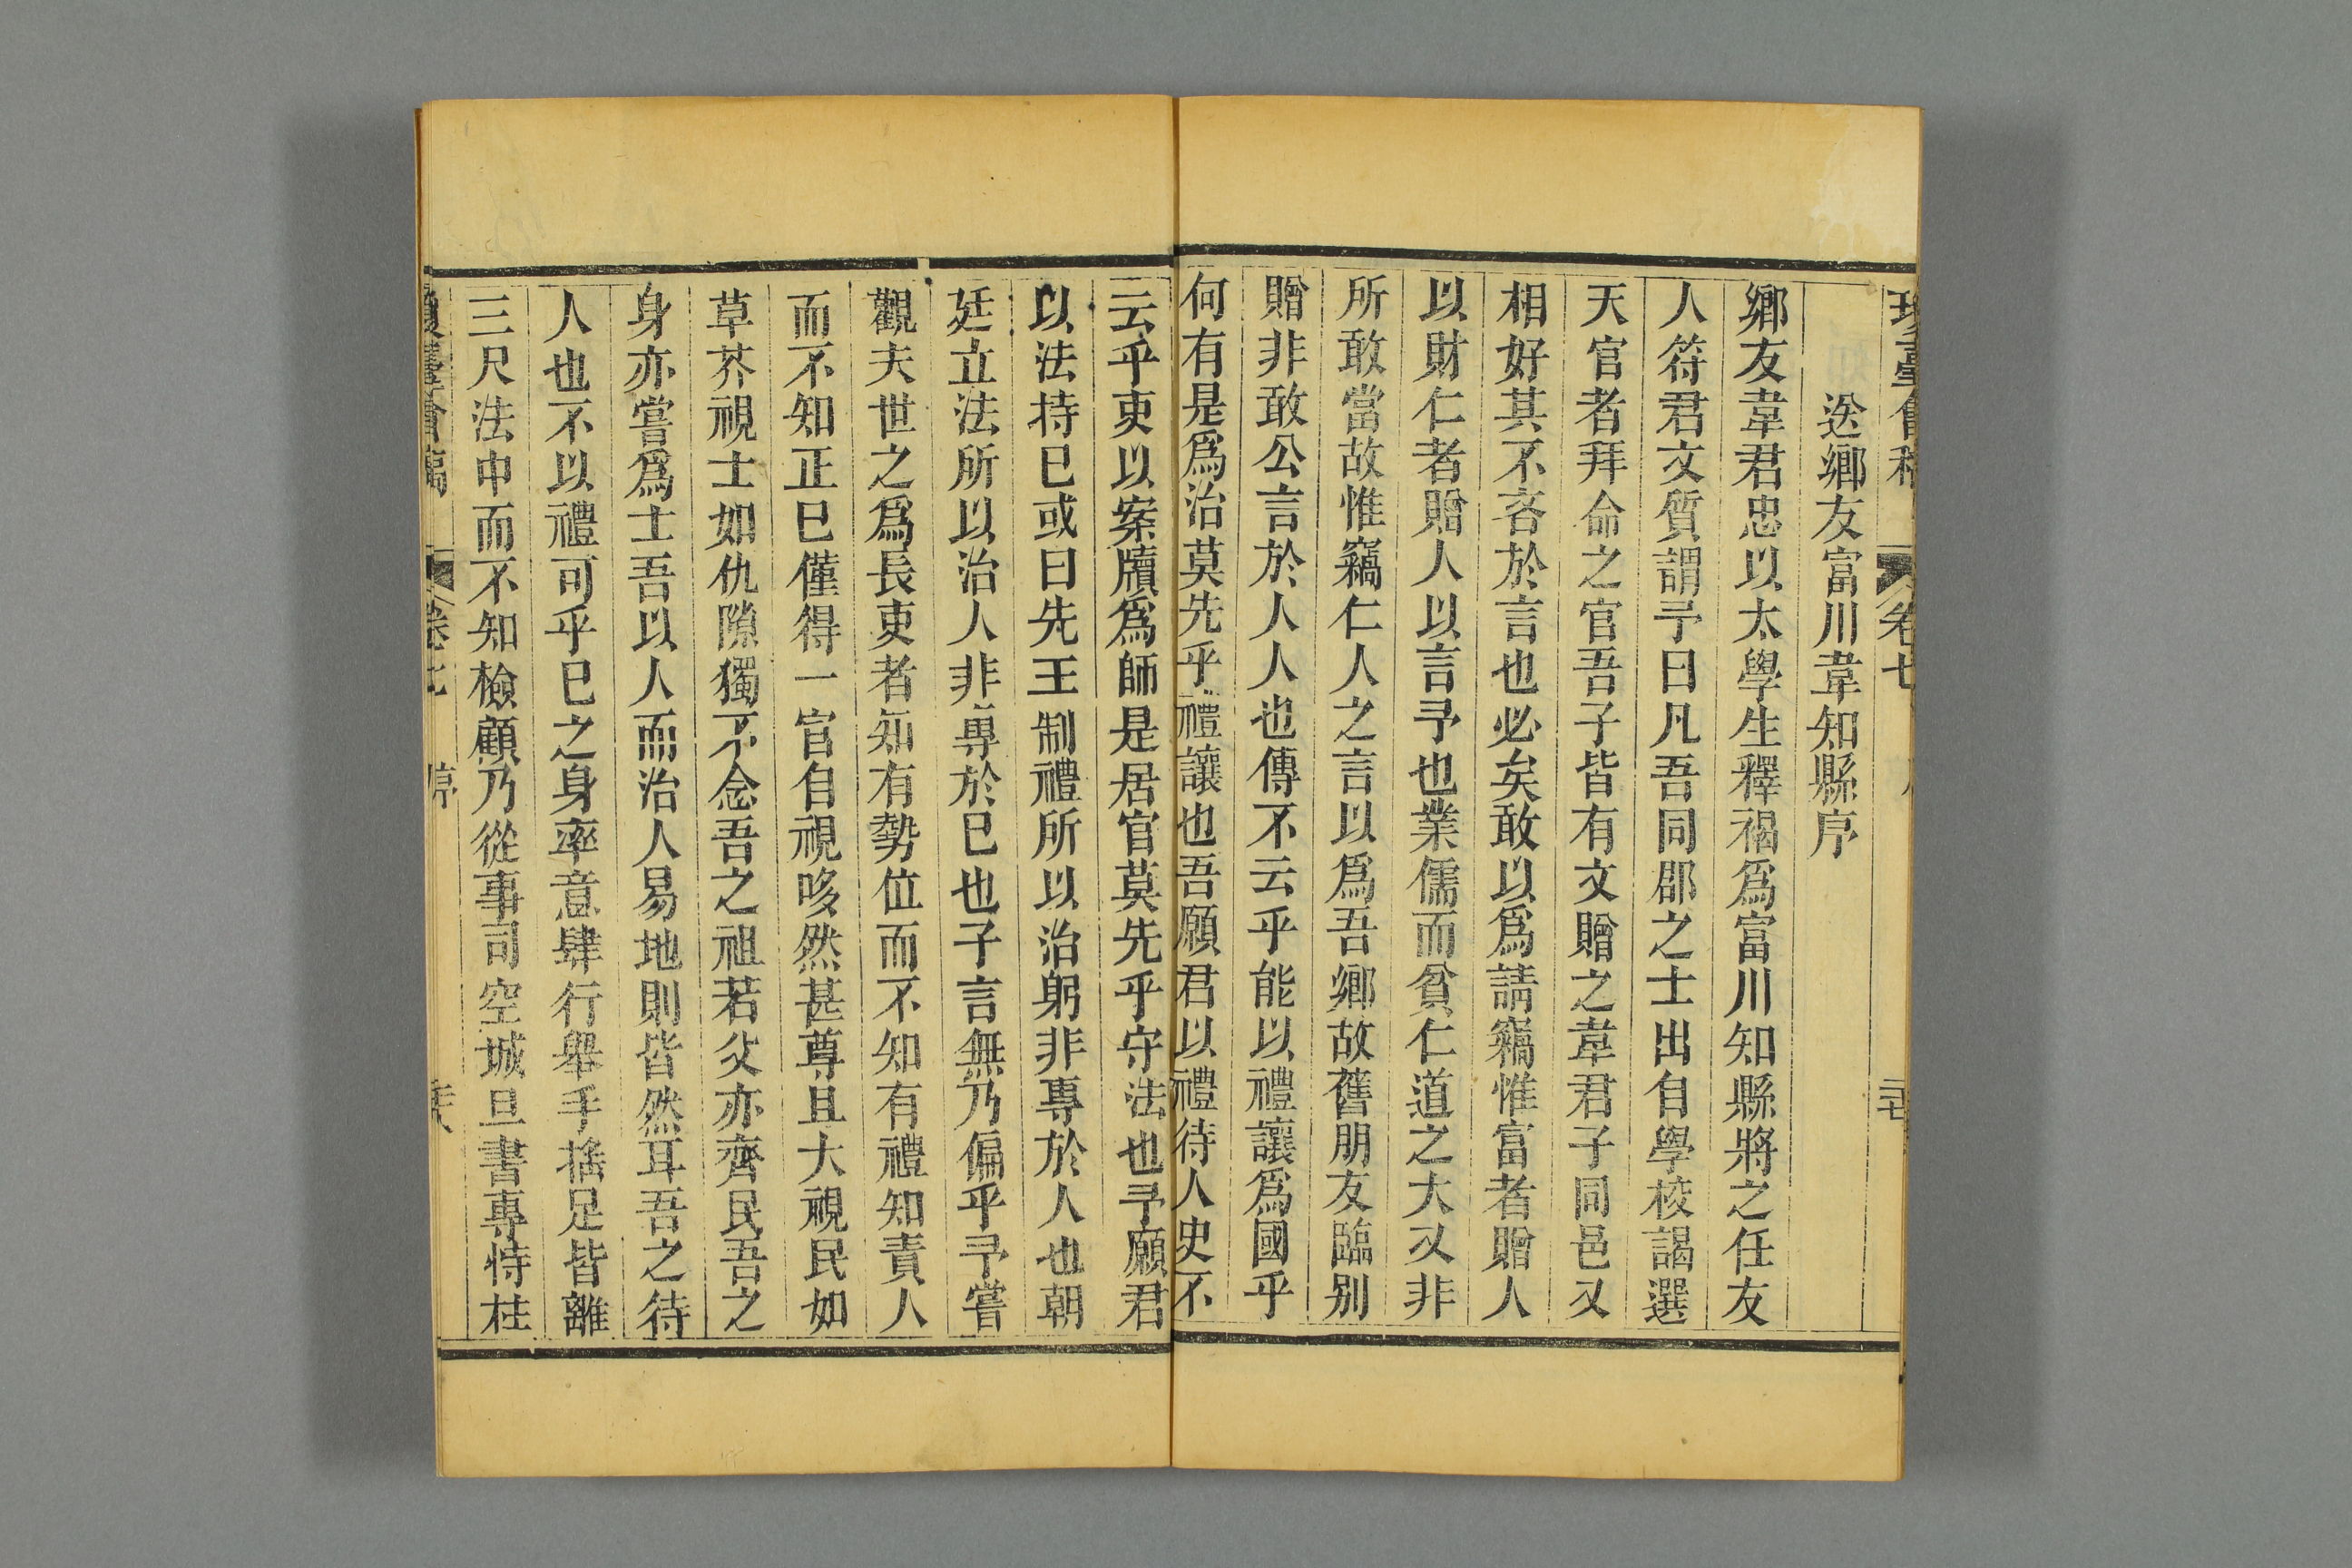 卷七
送鄉友富川韋知縣序
鄉友韋君忠以太學生釋褐爲富川知縣將之任友
人符君文質謂予曰凡吾同郡之士出自學校謁選
天官者拜命之官吾子皆有文贈之韋君子同邑又
相好其不吝於言也必矣敢以爲請竊惟富者贈人
以財仁者贈人以言予也業儒而貧仁道之大又非
所敢當故惟竊仁人之言以爲吾鄉故舊朋友臨别
贈非敢公言於人人也傳不云乎能以禮讓爲國乎
何有是爲治莫先乎禮讓也吾願君以禮待人史不
云乎吏以案牘爲師是居官莫先乎守法也予願君
以法持已或曰先王制禮所以治躬非專於人也朝
廷立法所以治人非專於已也子言無乃偏乎予嘗
觀夫世之爲長吏者知有勢位而不知有禮知責人
而不知正已僅得一官自視哆然甚尊且大視民如
草芥視士如仇隙獨不念吾之祖若父亦齊民吾之
身亦嘗爲士吾以人而治人易地則皆然耳吾之待
人也不以禮可乎已之身率意肆行舉手搖足皆離
三尺法中而不知檢顧乃從事司空城旦書專恃桂
瓊臺會稿 卷七 序